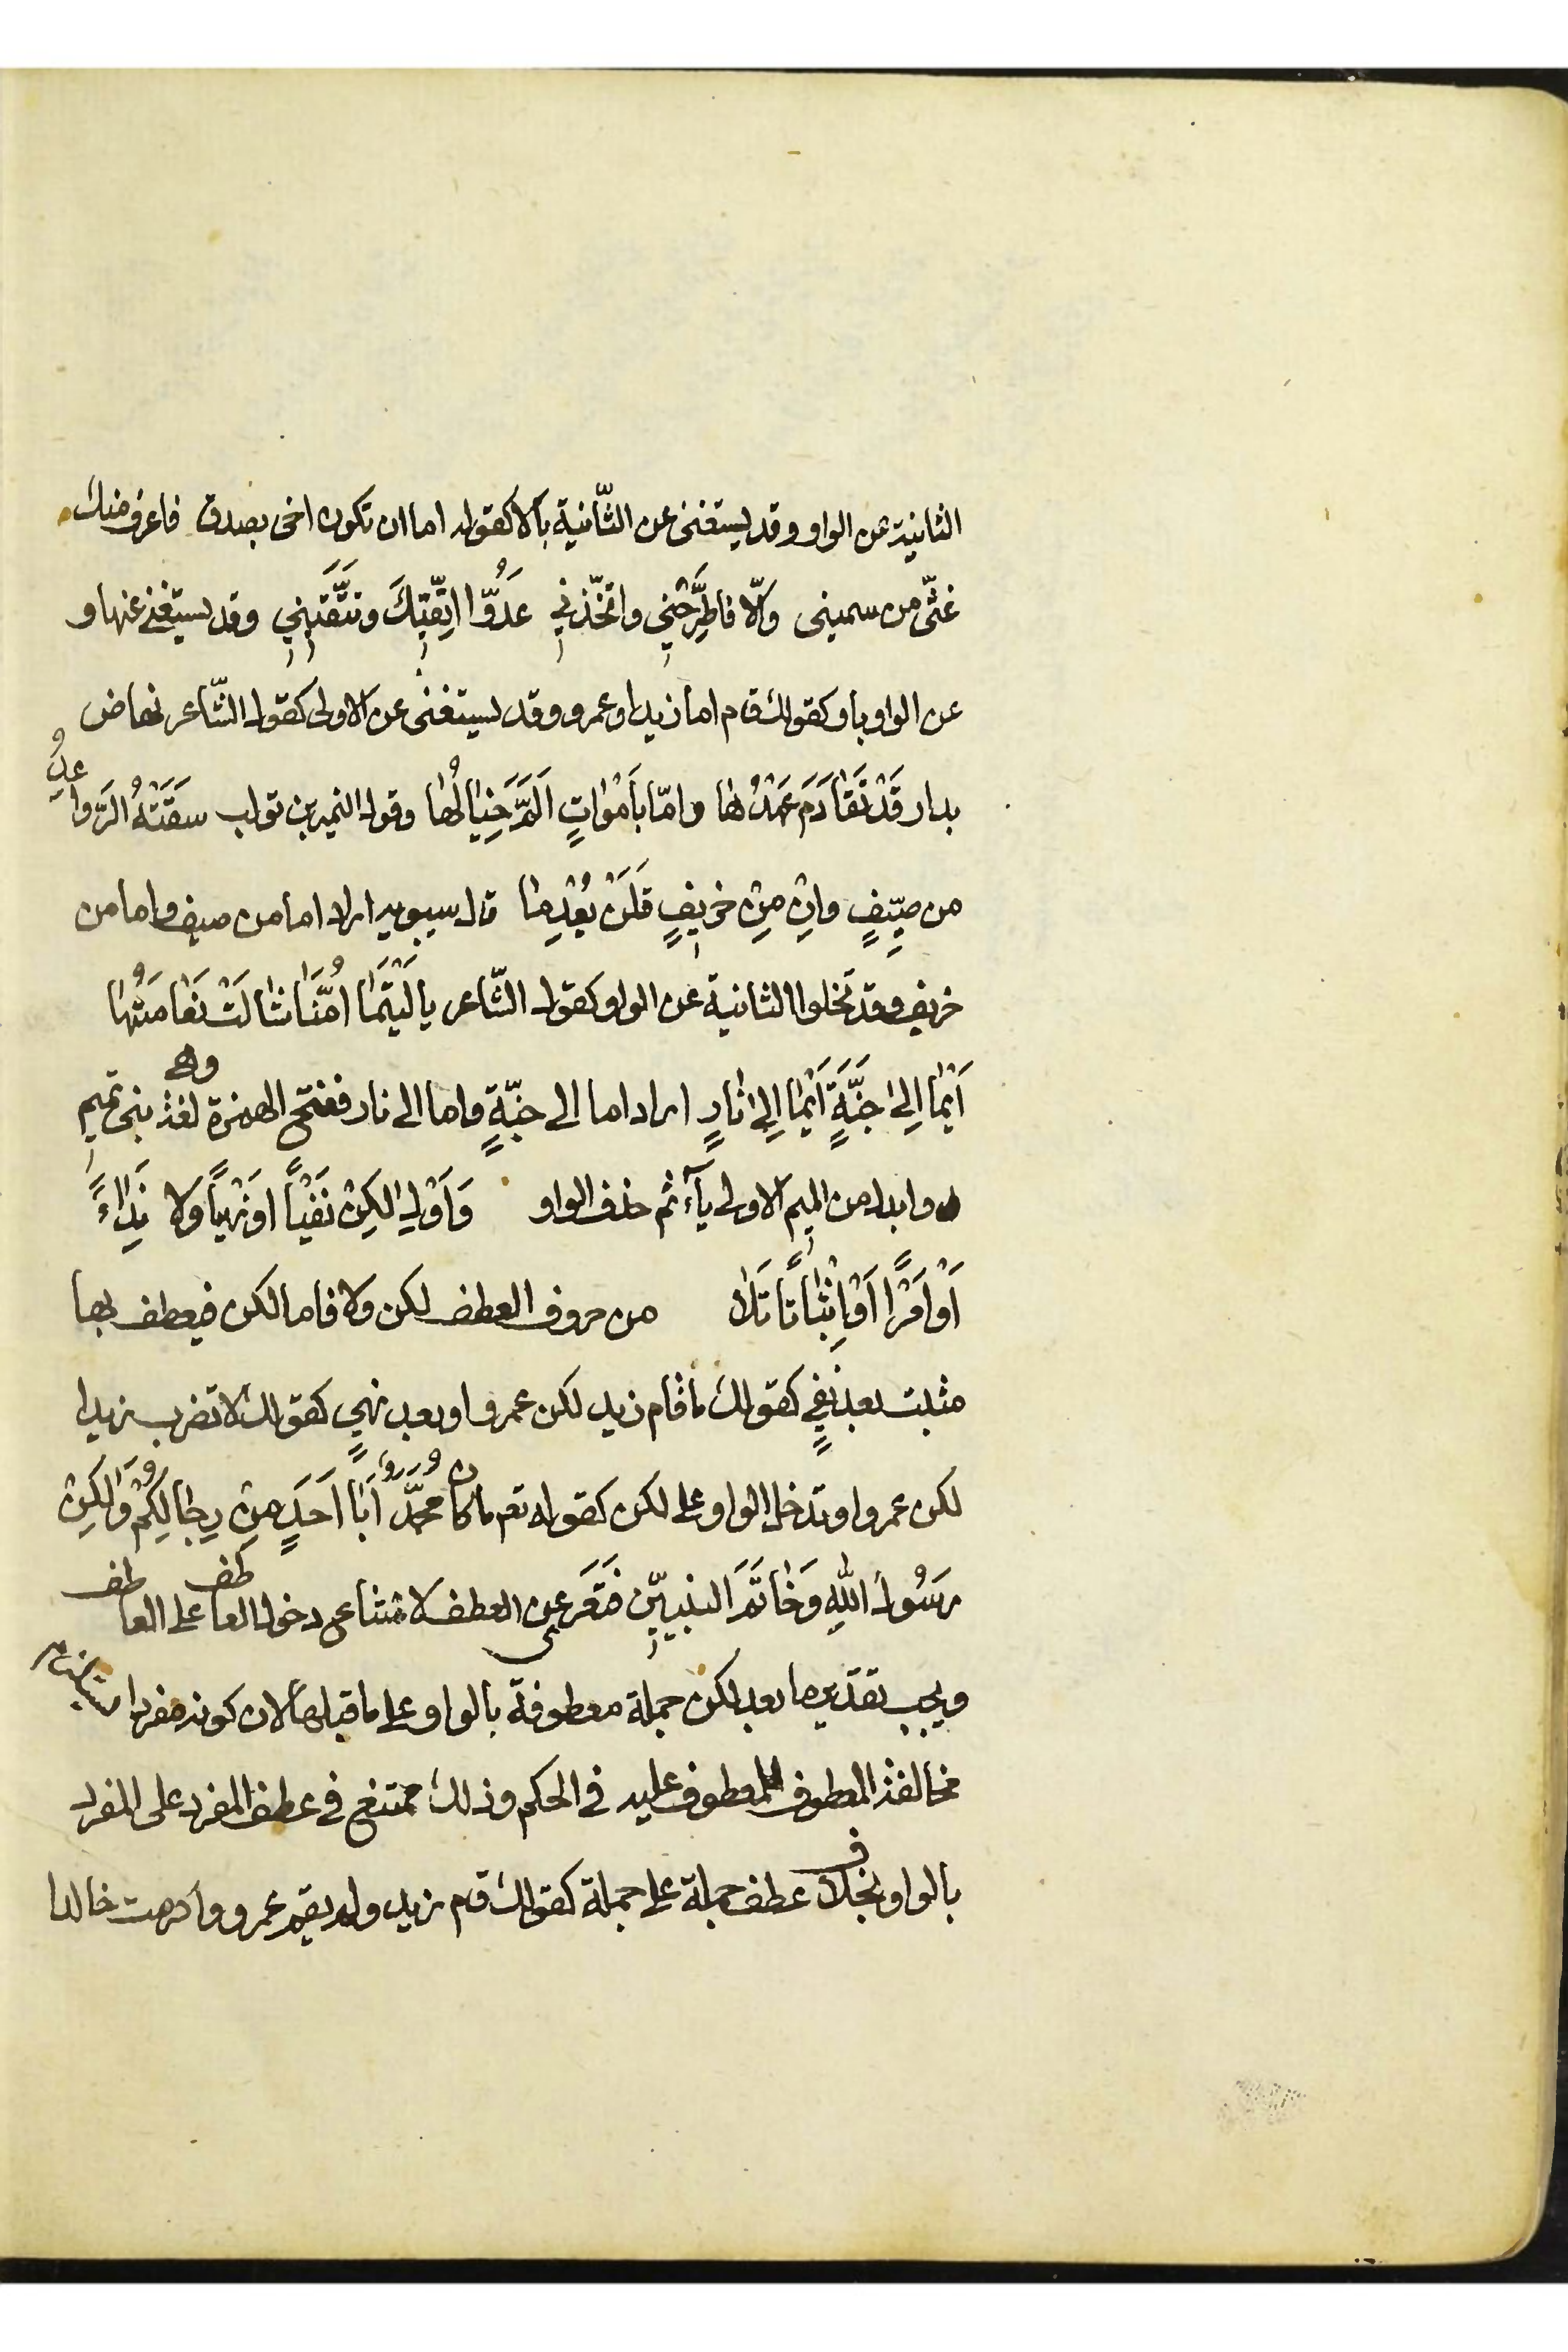 الثانية عن الواو وقد يستغنى عن الثّانية بالا كقوله اما ان تكون اخى بصدق فاعرف منك
غثّى من سمينى والّا فاطَّرِحْنِي واتّخذنِي عَدُوّا اتّقِيكَ وتَتَّقِينِي وقد يستغنى عنها و
عن الواو باو كقولك قام اما زيد او عمرو وقد يستغنى عن الاولى كقول الشّاعر نهاض
بدار قَدْ تَقَادَمَ عَهْدُها وامّا بأَمْوَاتٍ اَلَمَّ خَيَالُها وقول النمر بن تولب سَقَتْهُ الرَّوَاعِدُ
من صيّفٍ وانْ مِنْ خَريفٍ فَلَنْ يُعْدِمَا قال سيبويه اراد اما من صيف واما من
خريف وقد تخلوا الثانية عن الواو كقول الشّاعر يا لَيْتَمَا اُمّنَا شَالَتْ نَعَامَتُهَا
اَيْمَا اِلىٰ جَنَّةٍ اَيْمَا اِلىٰ نَارٍ اراد اما الى جنّةٍ واما الى نار ففتح الهمزة وهى لغة بنى تميم
وابدل من الميم الاولى يآء ثم حذف الواو وَاَوْلِ لكِنْ نَفْيًا اوْ نَهْيًا وَلا نِدَاءً
اَوْ اَمْرًا اَوْ اِثْبَاتًا تَلا من حروف العطف لكن ولا فاما لكن فيعطف بها
مثبت بعد نفىٍ كقولك ما قام زيد لكن عمرو او بعد نهىٍ كقولك لا تضرب زيدا
لكن عمروا وتدخل الواو على لكن كقوله تعم ما كان محمّدٌ اَبَا اَحَدٍ مِنْ رِجَالِكُمْ وَلٰكِنْ
رَسُولَ اللّٰهِ وَخَاتَمَ النبيّين فَتَعَرى عن العطف لامتناع دخول العاطف على العاطف
ويجب تقدير ما بعد لكن جملة معطوفة بالواو على ما قبلها لان كونه مفردا
مخالفة المعطوف للمعطوف عليه فى الحكم وذلك ممتنع فى عطف المفرد على المفرد
بالواو بخلاف عطف جملة على جملة كقولك قام زيد ولم يقم عمرو واكرمت خالدا